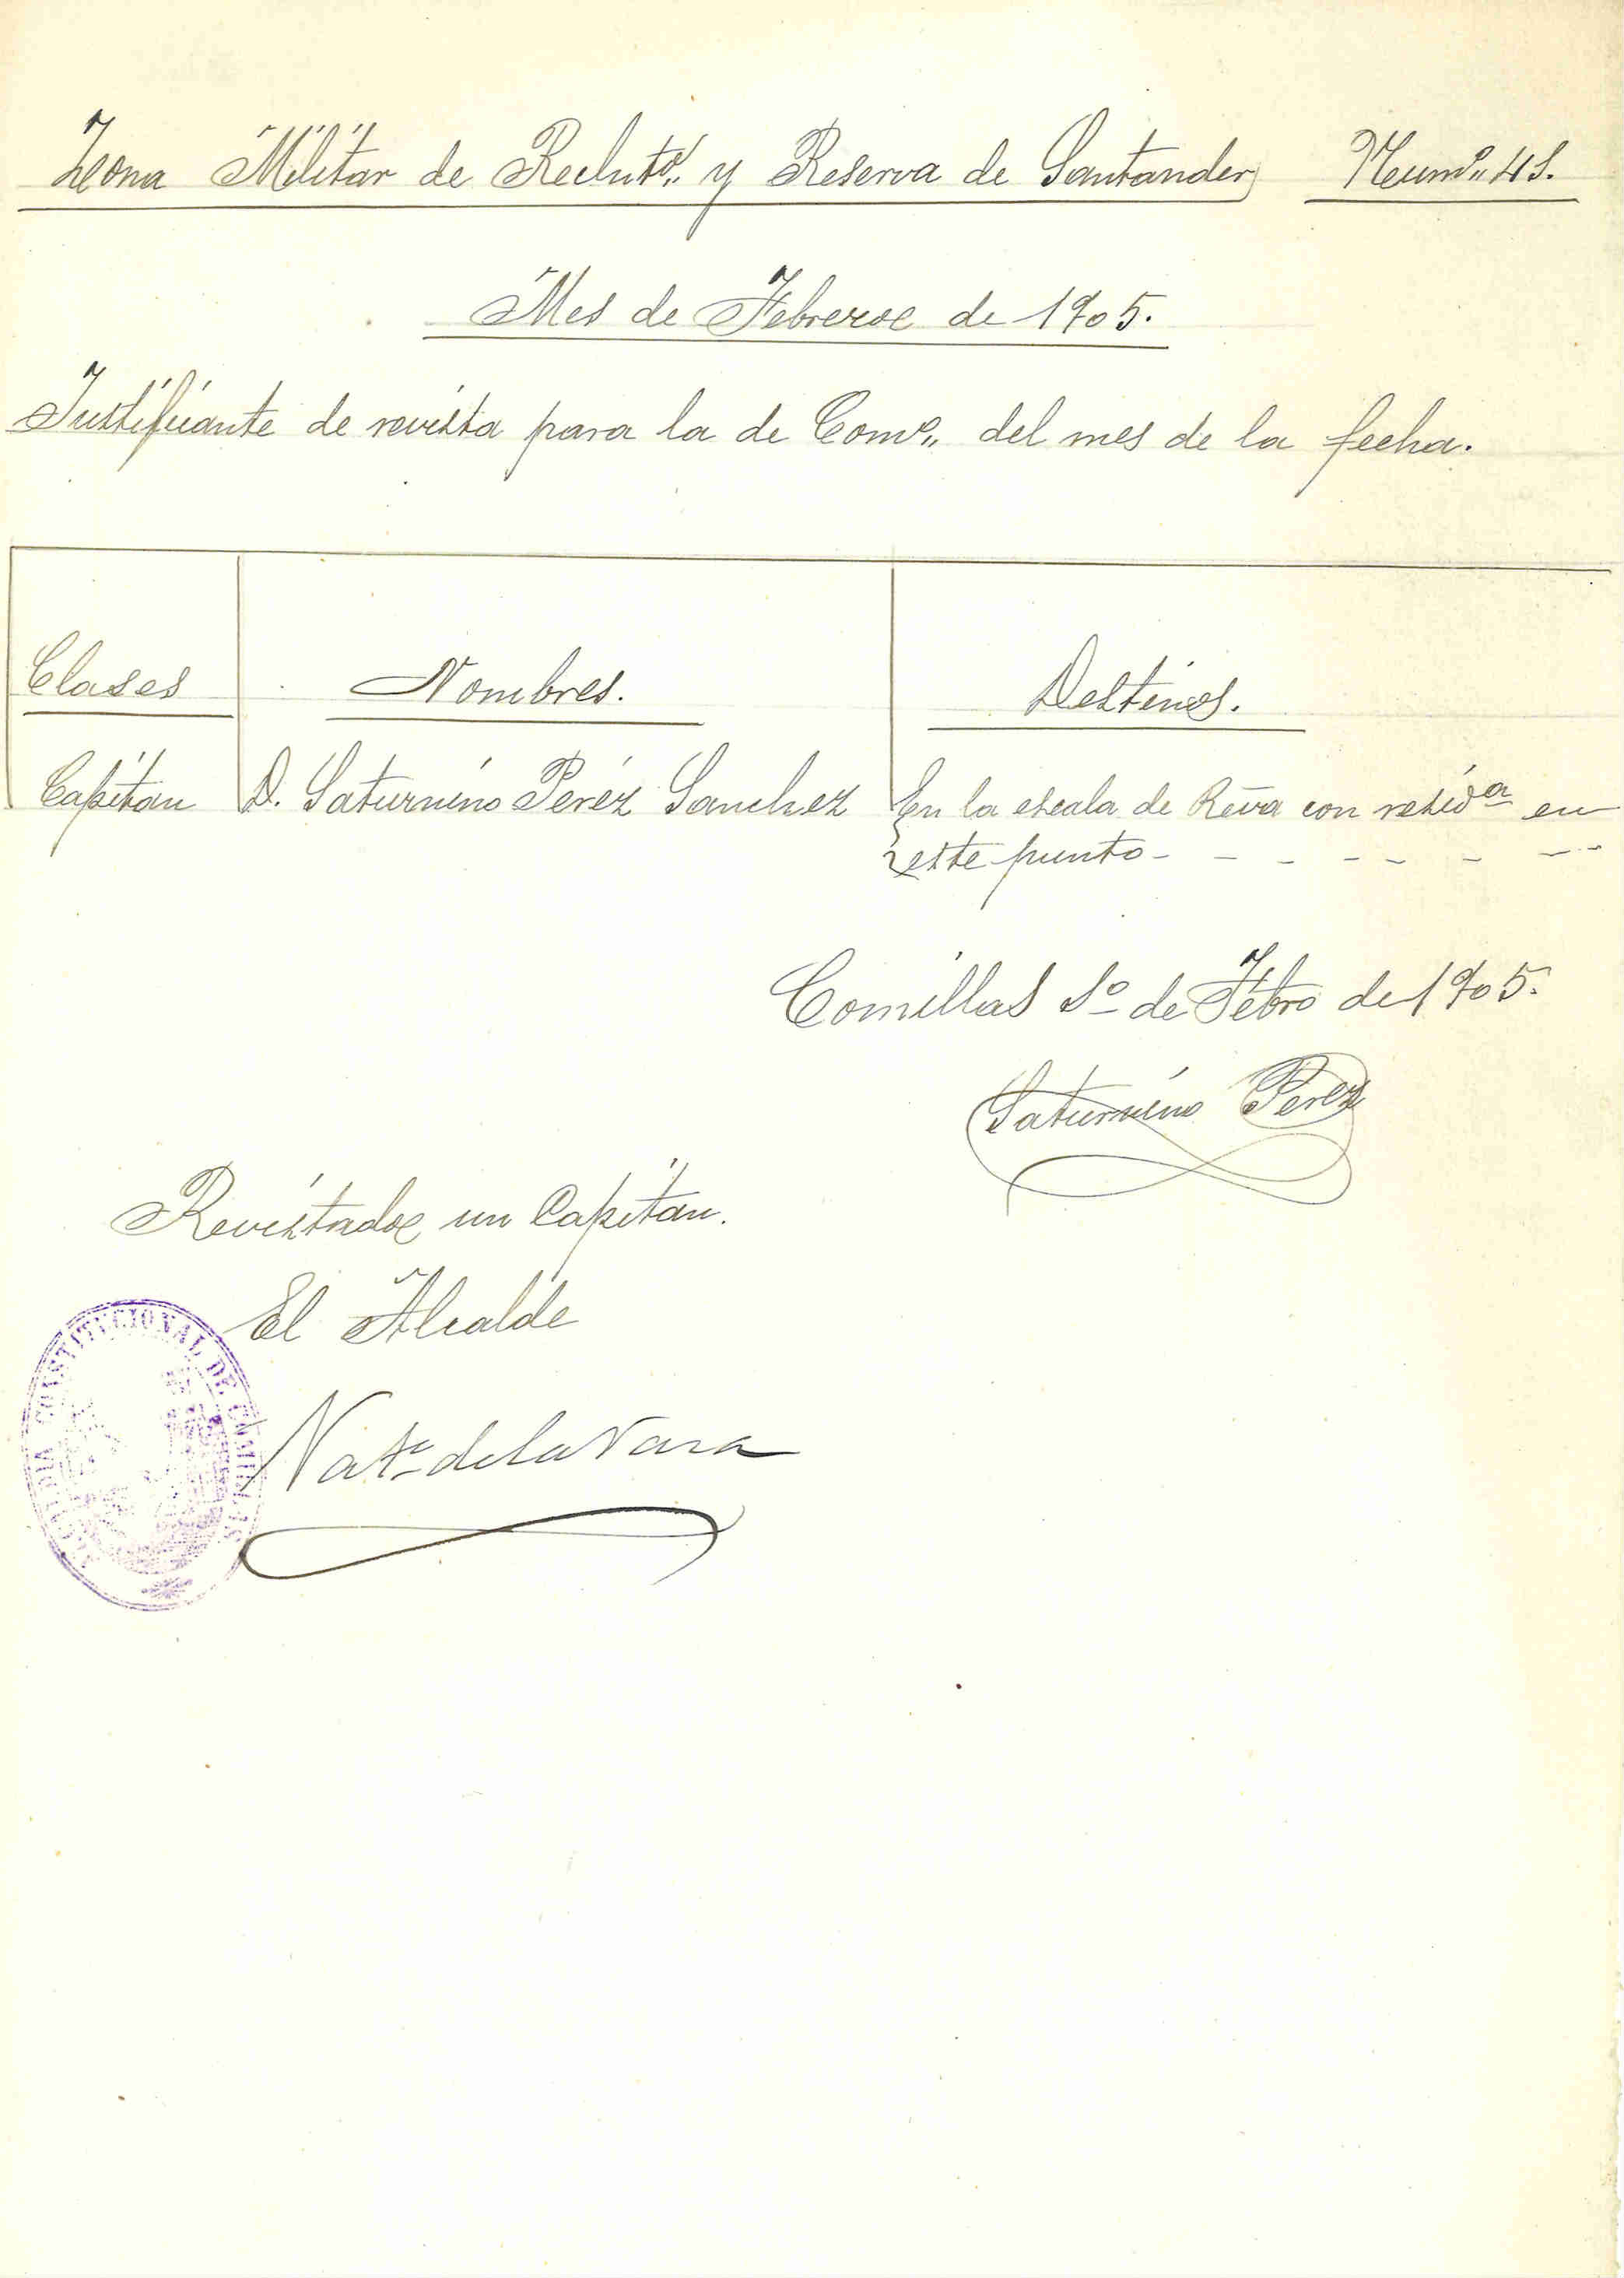 Zona Militar de Reclutº y Reserva de Santander Numº 41.
Mes de Febrero de 1905.
Justificante de revista para la de Comº del mes de la fecha.
Clases Nombres. Destinos.
Capitan D. Saturnino Peréz Sanchez En la escala de Rêva con residª en
este punto - - - - - - -
Comillas 1º de Febro de 1905.
Saturnino Perez
Revistado un Capitan.
El Alcalde
ALCALDIA CONSTITUCIONAL DE COMILLAS
de la Vara